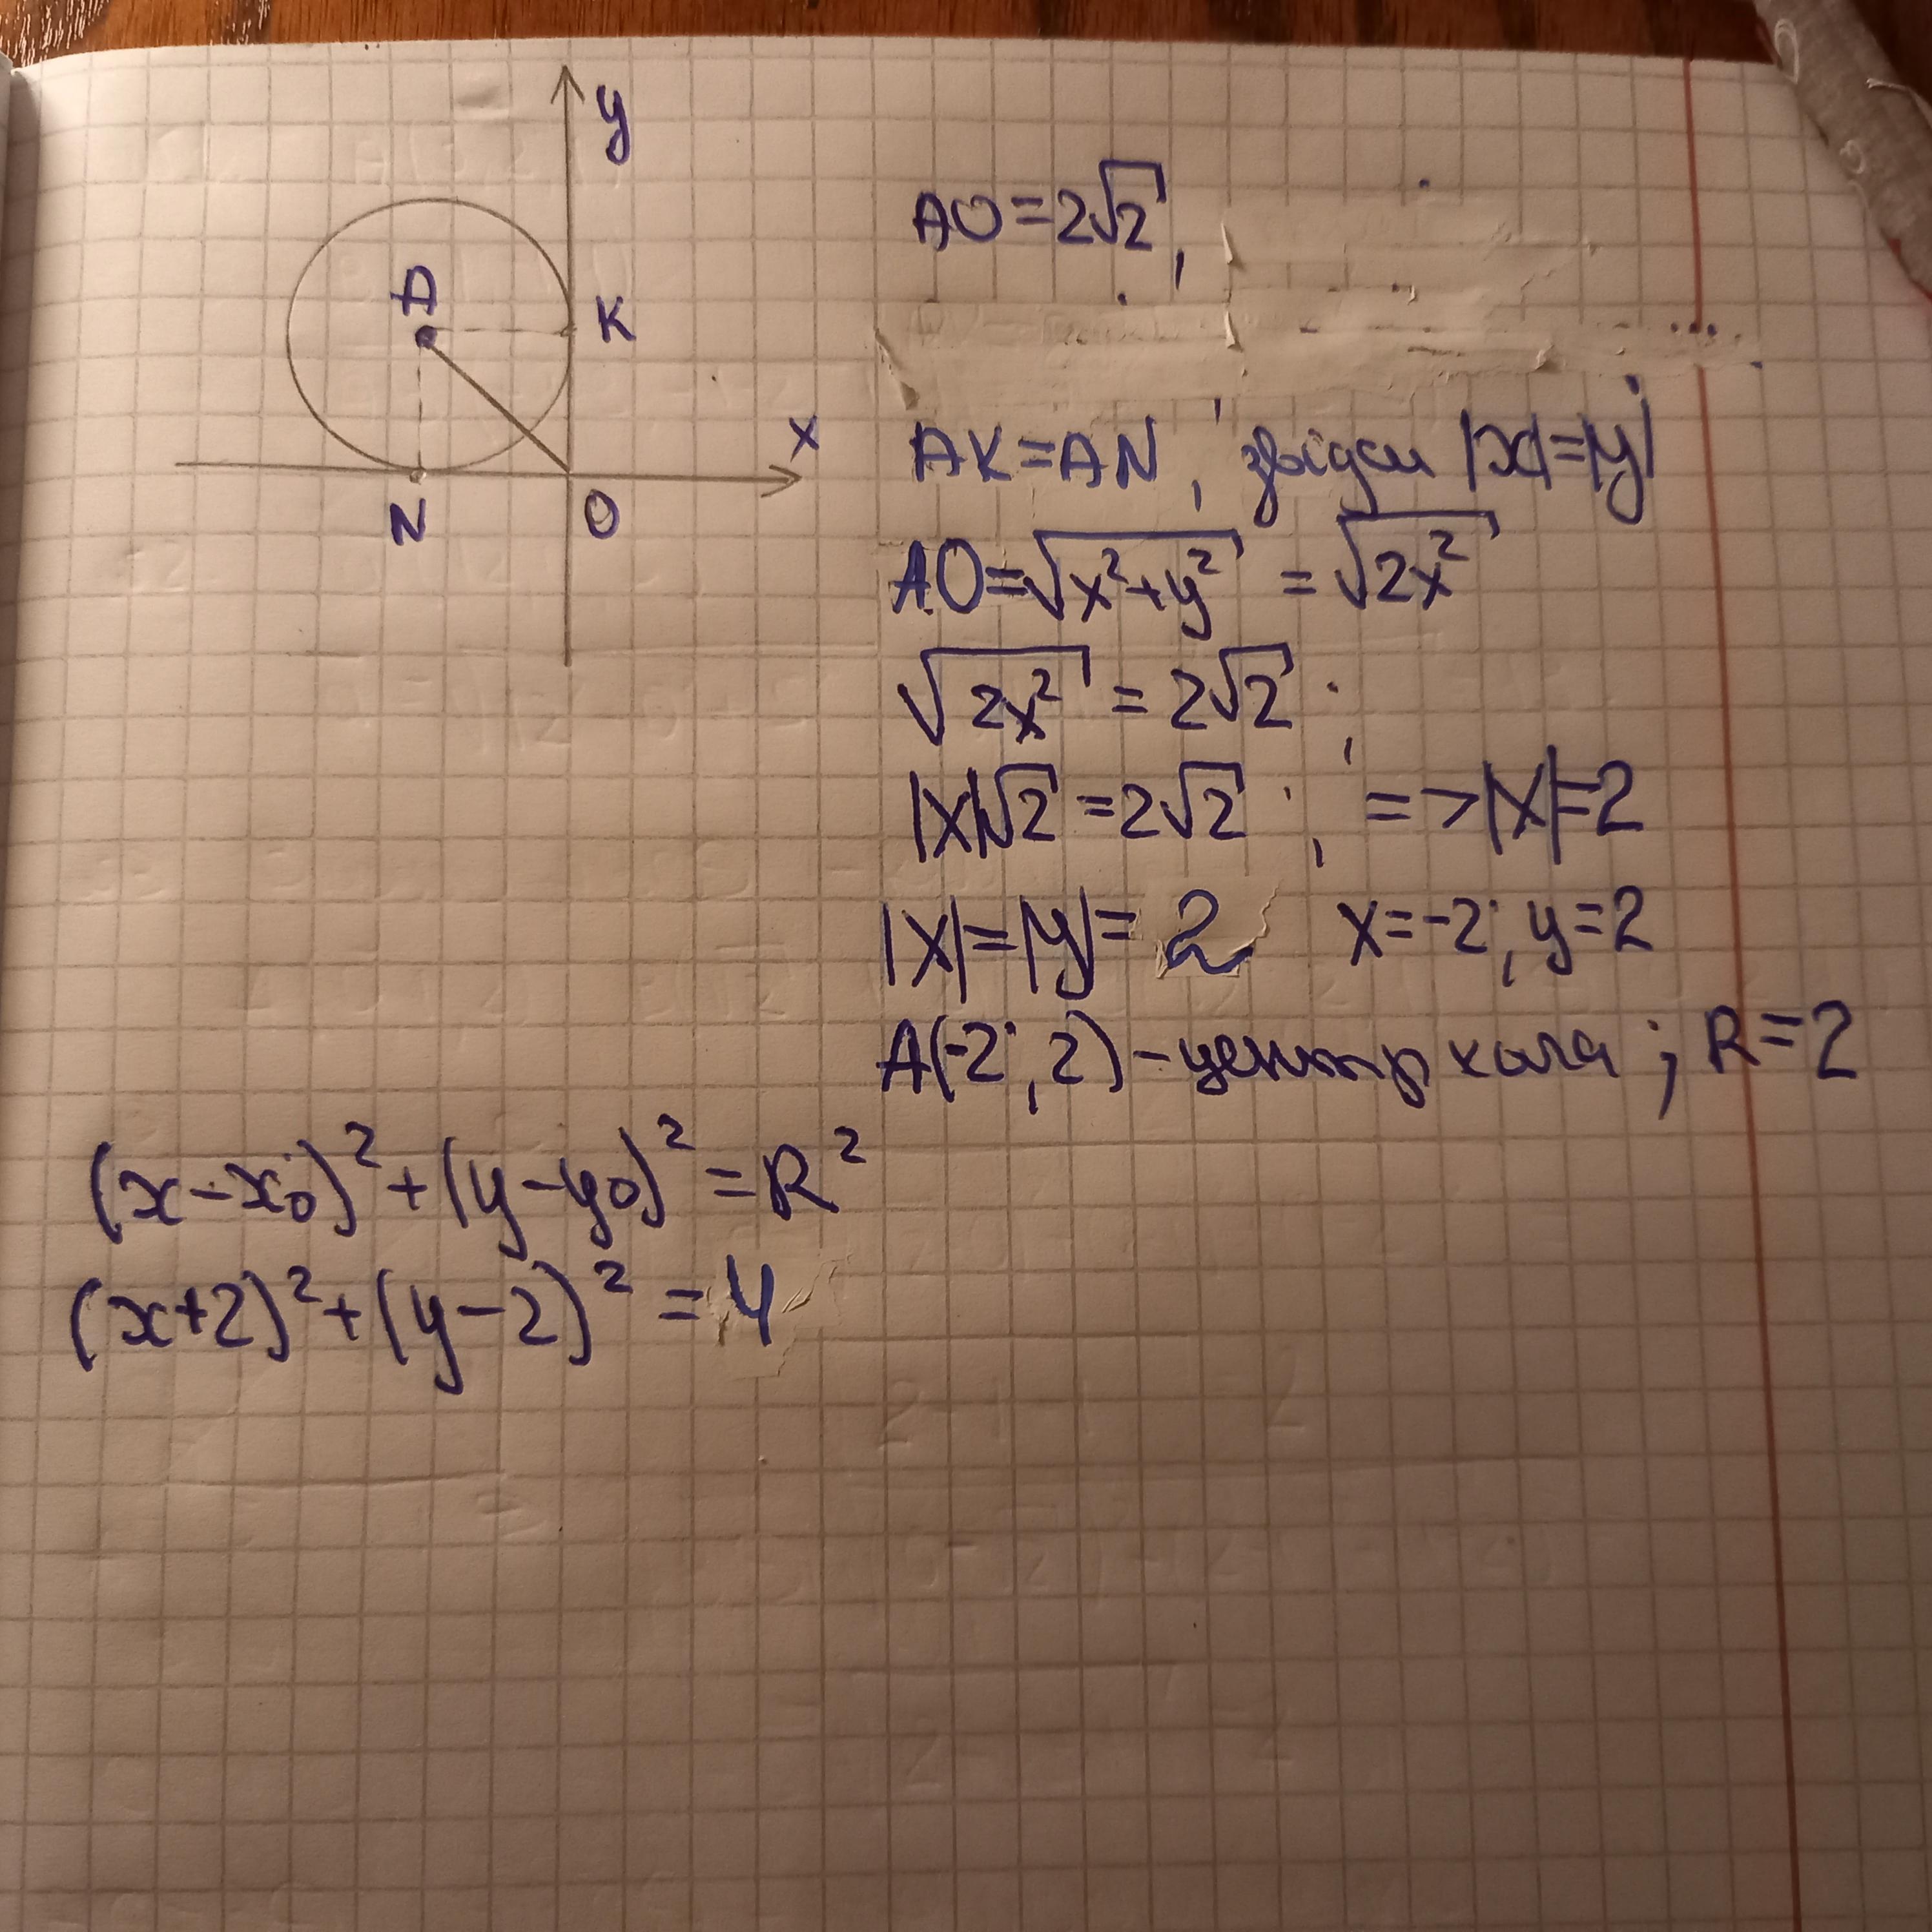 y
A
K
x
N
O
AO=2√2,
AK=AN, звідси |x|=|y|
AO=√x²+y² = √2x²
√2x² = 2√2 ;
|x|√2 =2√2 ; =>|x|=2
|x|=|y|= 2 x=-2; y=2
A(-2; 2) - центр кола ; R=2
(x-x₀)²+(y-y₀)²=R²
(x+2)²+(y-2)² =4